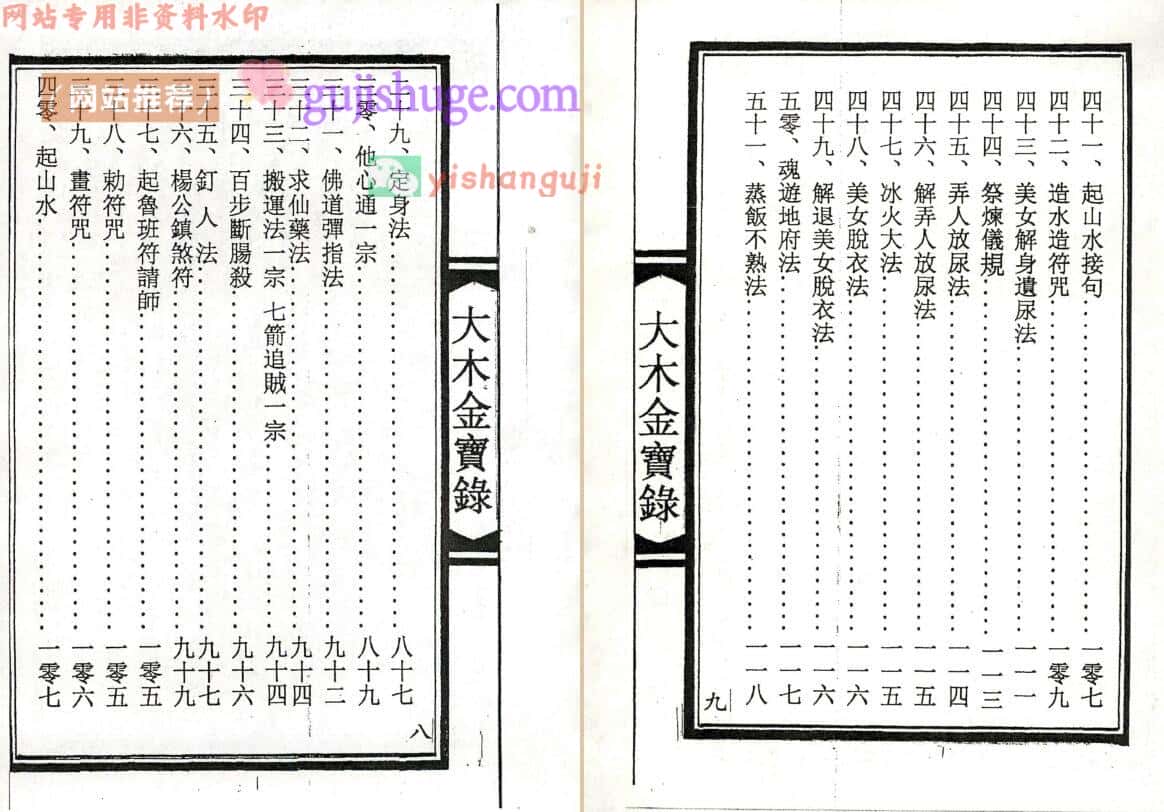 网站专用非资料水印
〈网站推荐〉
gujishuge.com
yishanguji
二十九、定身法……八十七
三零、他心通一宗……八十九
三十一、佛道彈指法……九十二
三十二、求仙藥法……九十四
三十三、搬運法一宗 七箭追賊一宗……九十四
三十四、百步斷腸殺……九十六
三十五、釘人法……九十七
三十六、楊公鎮煞符……九十九
三十七、起魯班符請師……一零五
三十八、勅符咒……一零五
三十九、畫符咒……一零六
四零、起山水……一零七
八
大木金寶錄
大木金寶錄
四十一、起山水接句……一零七
四十二、造水造符咒……一零九
四十三、美女解身遺尿法……一一一
四十四、祭煉儀規……一一三
四十五、弄人放尿法……一一四
四十六、解弄人放尿法……一一五
四十七、冰火大法……一一五
四十八、美女脫衣法……一一六
四十九、解退美女脫衣法……一一六
五零、魂遊地府法……一一七
五十一、蒸飯不熟法……一一八
九